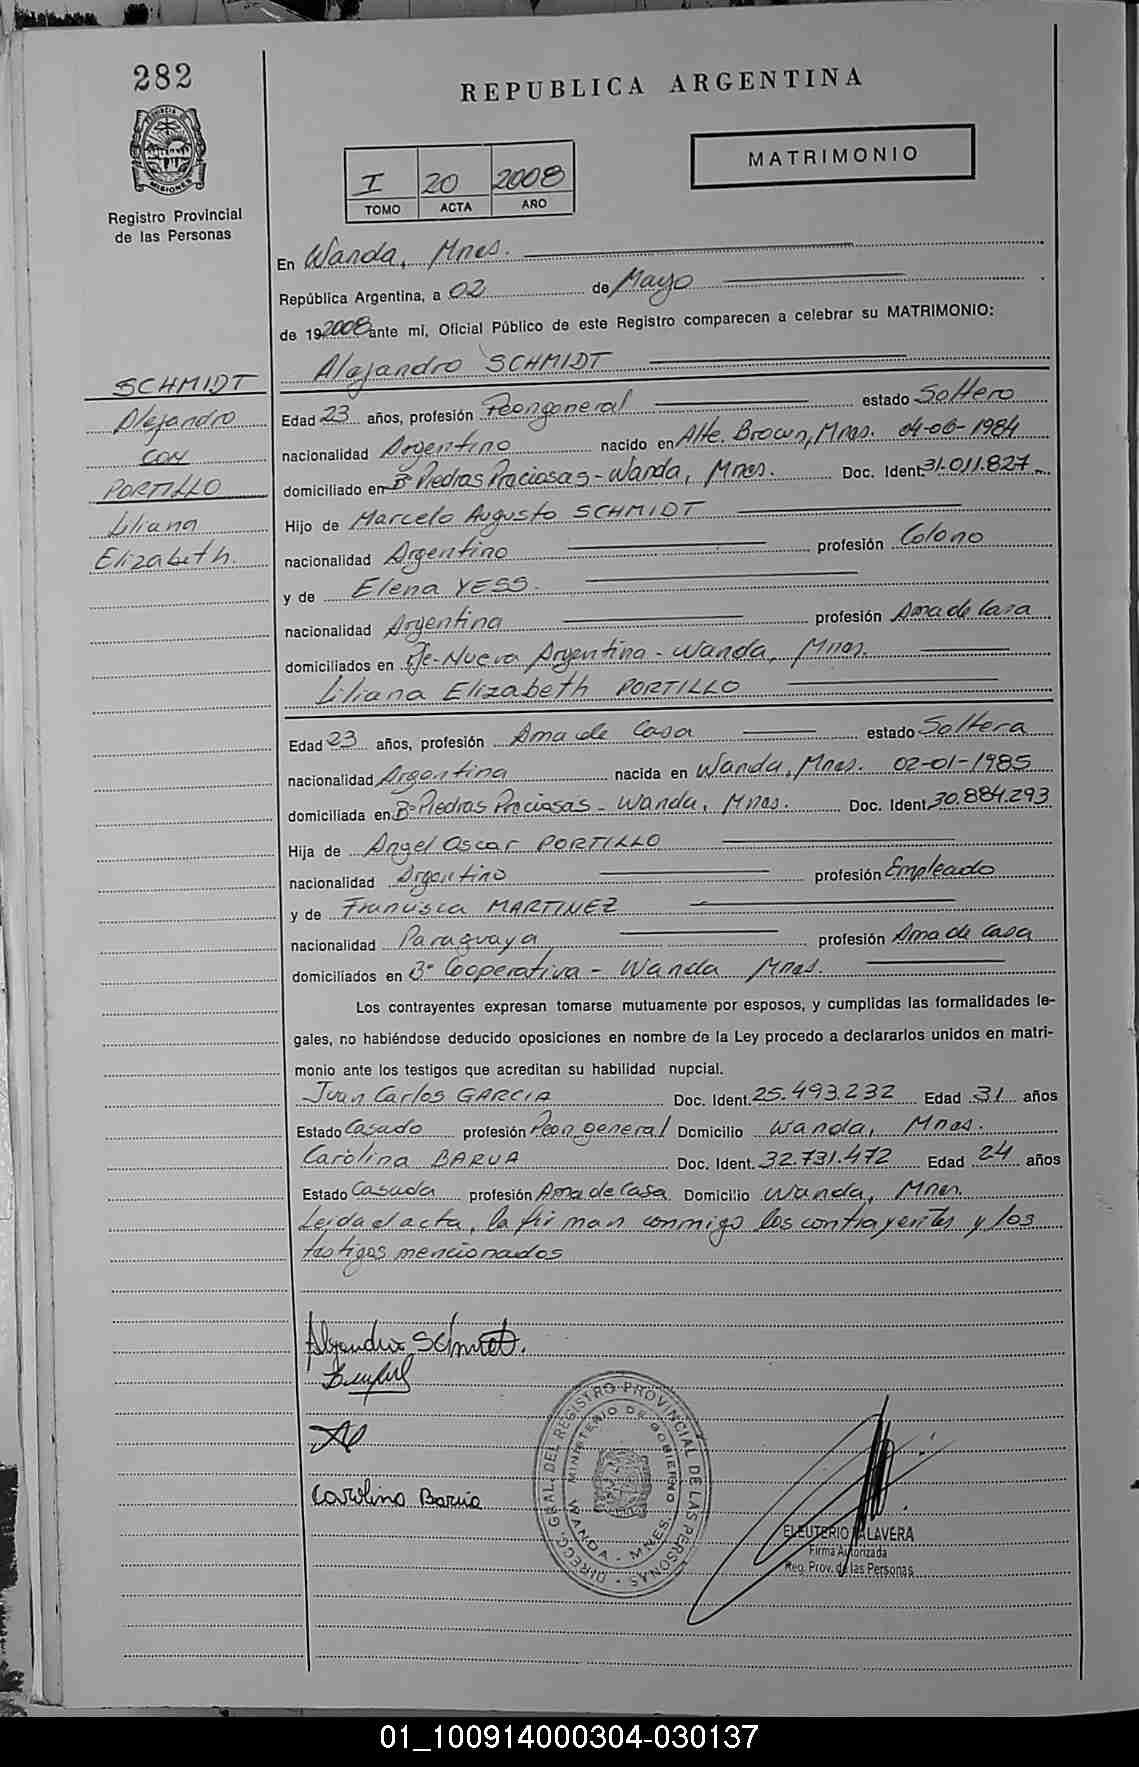 282
REPUBLICA ARGENTINA
PROVINCIA DE MISIONES
MATRIMONIO
I 20 2008
TOMO ACTA AÑO
Registro Provincial
de las Personas
En Wanda, Mnes.
República Argentina, a 02 de Mayo
de 192008 ante mí, Oficial Público de este Registro comparecen a celebrar su MATRIMONIO:
Alejandro SCHMIDT
SCHMIDT
Alejandro
CON
PORTILLO
Liliana
Elizabeth.
Edad 23 años, profesión Peon general estado Soltero
nacionalidad Argentino nacido en Alte. Brown, Mnes. 04-06-1984
domiciliado en Bº Piedras Preciosas - Wanda, Mnes. Doc. Ident. 31.011.827
Hijo de Marcelo Augusto SCHMIDT
nacionalidad Argentino profesión Colono
y de Elena YESS.
nacionalidad Argentina profesión Ama de Casa
domiciliados en Pje. Nueva Argentina - Wanda, Mnes.
Liliana Elizabeth PORTILLO
Edad 23 años, profesión Ama de Casa estado Soltera
nacionalidad Argentina nacida en Wanda, Mnes. 02-01-1985
domiciliada en Bº Piedras Preciosas - Wanda, Mnes. Doc. Ident. 30.884.293
Hija de Angel Oscar PORTILLO
nacionalidad Argentino profesión Empleado
y de Francisca MARTINEZ
nacionalidad Paraguaya profesión Ama de Casa
domiciliados en Bº Cooperativa - Wanda Mnes.
Los contrayentes expresan tomarse mutuamente por esposos, y cumplidas las formalidades le-
gales, no habiéndose deducido oposiciones en nombre de la Ley procedo a declararlos unidos en matri-
monio ante los testigos que acreditan su habilidad nupcial.
Juan Carlos GARCIA Doc. Ident. 25.493.232 Edad 31 años
Estado Casado profesión Peon general Domicilio Wanda, Mnes.
Carolina BARUA Doc. Ident. 32.731.472 Edad 24 años
Estado Casada profesión Ama de Casa Domicilio Wanda, Mnes.
Leida el acta, la firman conmigo los contrayentes y los
testigos mencionados
Alejandro Schmidt.
Carolina Barua
DIRECC. GRAL. DEL REGISTRO PROVINCIAL DE LAS PERSONAS
MINISTERIO DE GOBIERNO
WANDA - MNES.
ELEUTERIO TALAVERA
Firma Autorizada
Reg. Prov. de las Personas
01_100914000304-030137